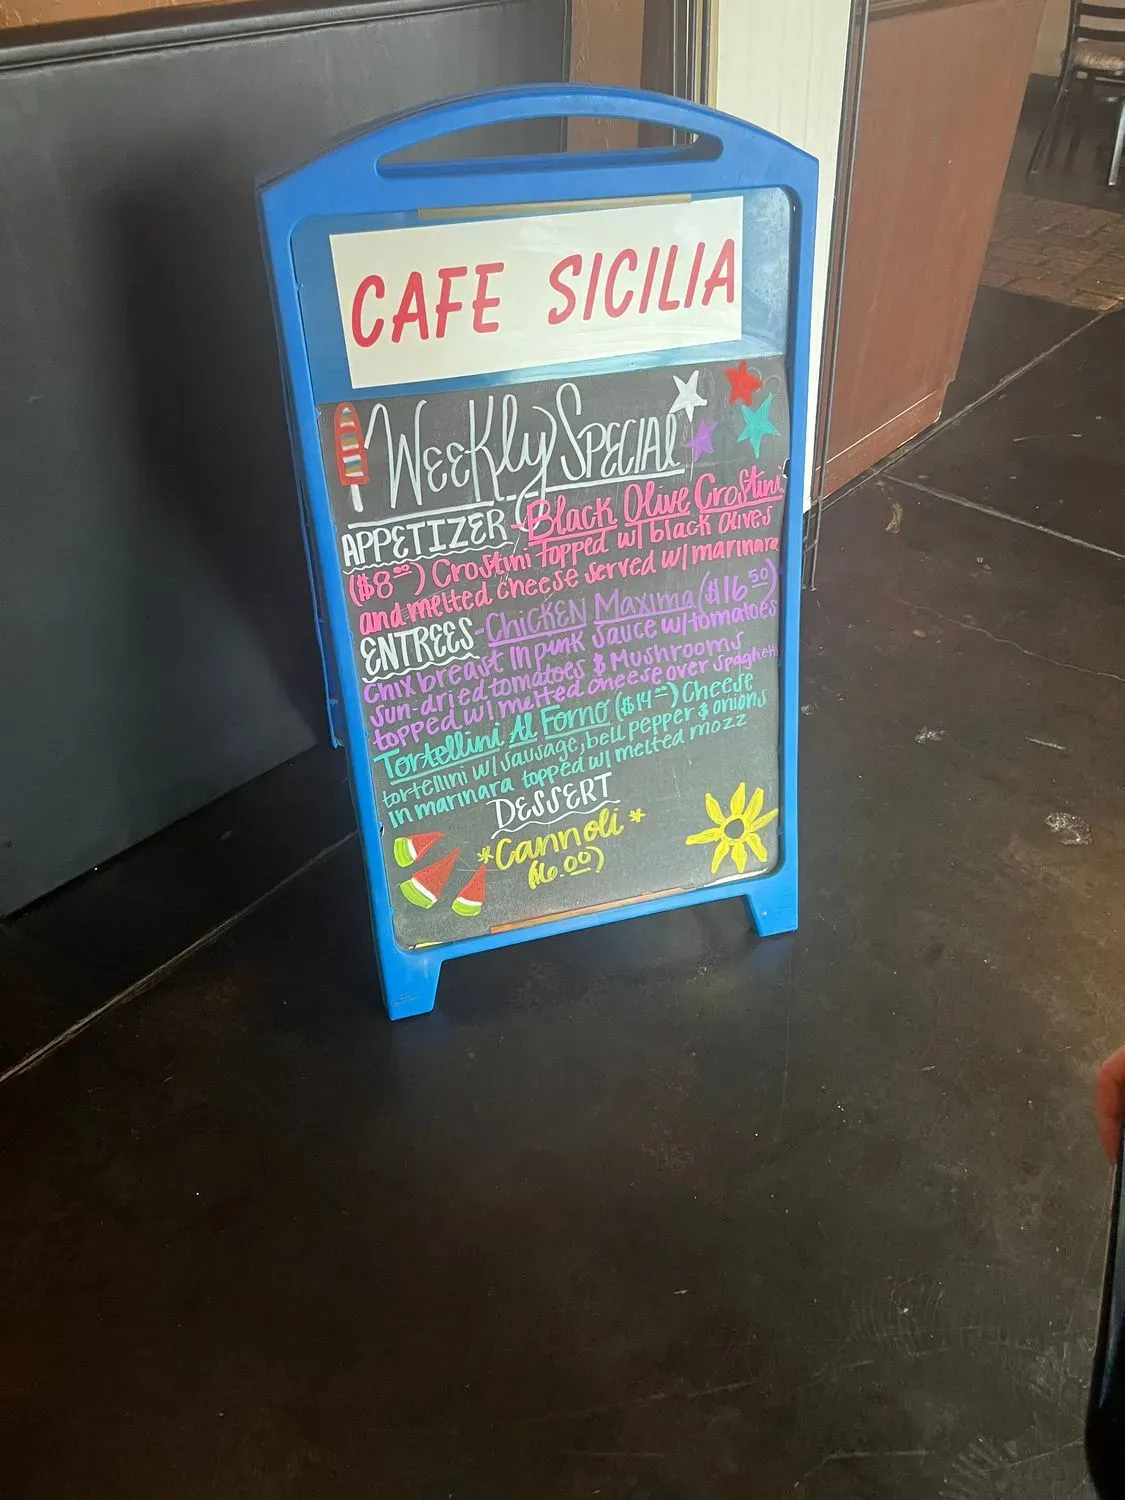 CAFE SICILIA
WEEKly SPECIAL
APPETIZER - Black Olive Crostini
($8.00) Crostini topped w/ black olives
and melted cheese served w/ marinara
ENTREES - CHICKEN Maxima ($16.50)
Chix breast in pink sauce w/ tomatoes
sun-dried tomatoes & Mushrooms
topped w/ melted cheese over spaghetti
Tortellini Al Forno ($14.00) Cheese
tortellini w/ sausage, bell pepper & onions
in marinara topped w/ melted mozz
DESSERT
*Cannoli*
($6.00)